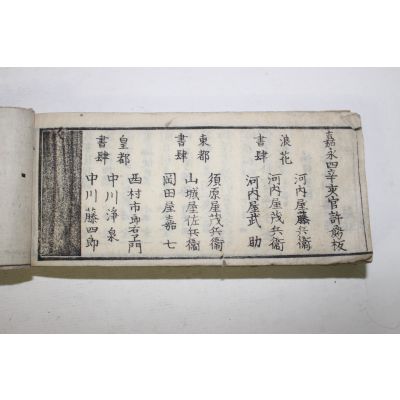 嘉永四辛亥官許為板
浪花書肆
河内屋藤兵衞
河内屋茂兵衞
河内屋武助
東都書肆
須原屋茂兵衞
山城屋佐兵衞
岡田屋嘉七
皇都書肆
西村市郎右衞門
中川淨泉
中川藤四郎